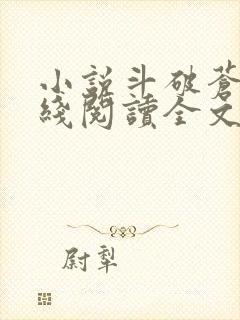 小説斗破蒼
綫閱讀全文
尉犁